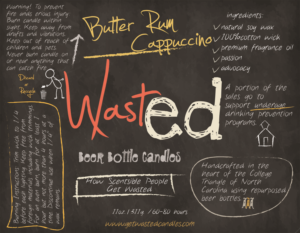 Warning: To prevent
fire and serious injury
Burn candle within
sight. Keep away from
drafts and vibrations.
Keep out of reach of
children and pets.
Never burn candle on
or near anything that
can catch fire.
Butter Rum
Cappuccino
ingredients:
natural soy wax
100% cotton wick
premium fragrance oil
passion
advocacy
WastEd
Beer Bottle Candles
How Scentsible People
Get Wasted
11oz | 311g / 60-80 hours
www.getwastedcandles.com
A portion of the
sales go to
support underage
drinking prevention
programs
Handcrafted in the
heart of the College
Triangle of North
Carolina using repurposed
beer bottles